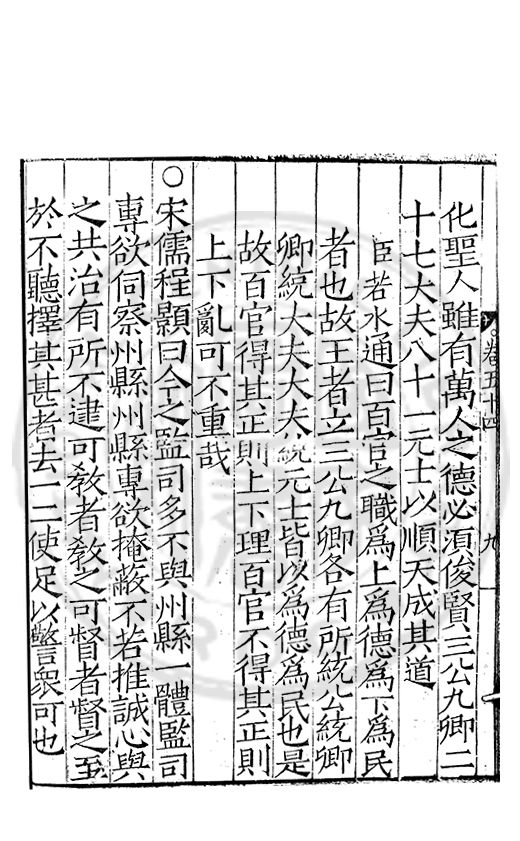 卷五十四 九
化聖人雖有萬人之德必須俊賢三公九卿二
十七大夫八十一元士以順天成其道
臣若水通曰百官之職爲上爲德爲下爲民
者也故王者立三公九卿各有所統公統卿
卿統大夫大夫統元士皆以爲德爲民也是
故百官得其正則上下理百官不得其正則
上下亂可不重哉
○宋儒程顥曰今之監司多不與州縣一體監司
專欲伺察州縣州縣專欲掩蔽不若推誠心與
之共治有所不逮可教者教之可督者督之至
於不聽擇其甚者去一二使足以警衆可也